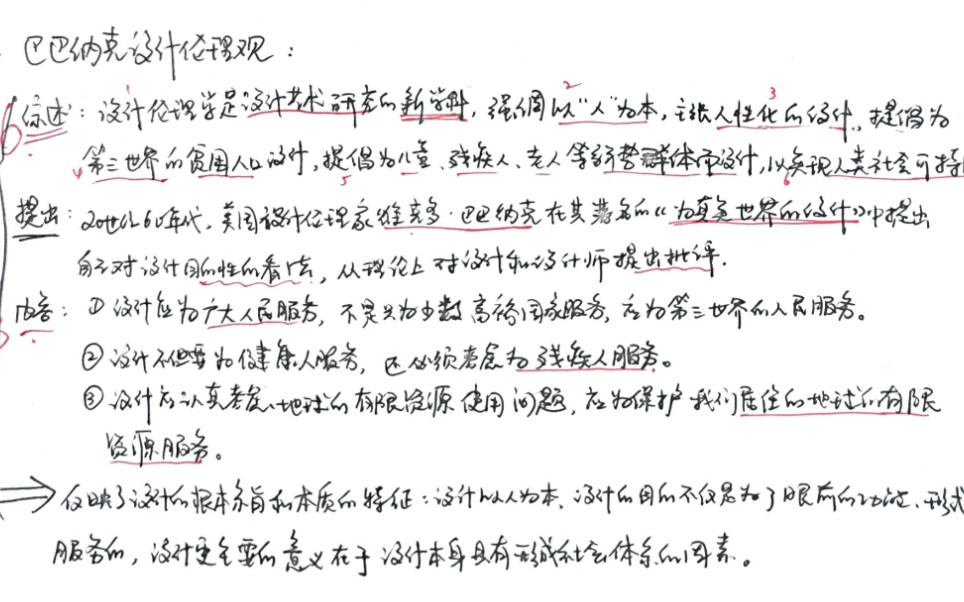 巴巴纳克设计伦理观：
综述：设计伦理学是设计艺术研究的新学科，强调以“人”为本，主张人性化的设计，提倡为
第三世界的贫困人口设计，提倡为儿童、残疾人、老人等弱势群体而设计，以实现人类社会可持
提出：20世纪60年代，美国设计伦理家维克多·巴巴纳克在其著名的《为真实世界的设计》中提出
自己对设计目的性的看法，从理论上对设计和设计师提出批评.
内容：①设计应为广大人民服务，不是只为少数富裕国家服务，应为第三世界的人民服务。
②设计不但要为健康人服务，还必须考虑为残疾人服务。
③设计应认真考虑地球的有限资源使用问题，应为保护我们居住的地球的有限
资源服务。
反映了设计的根本宗旨和本质的特征：设计以人为本，设计的目的不仅是为了眼前的功能、形式
服务的，设计更主要的意义在于设计本身具有形成社会体系的因素。